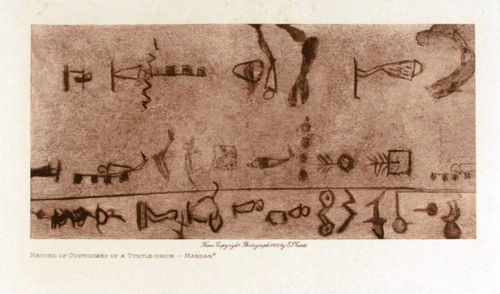 From Copyright Photograph 1908 by E.S. Curtis
RECORD OF CUSTODIANS OF A TURTLE-DRUM – MANDAN